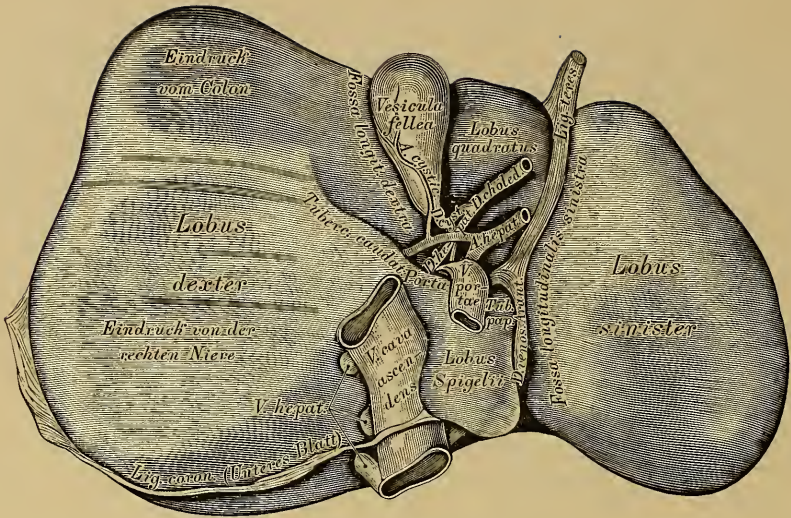 Eindruck
vom Colon
Fossa longit. dextra
Vesicula
fellea
A. cystic.
Lobus
quadratus
Lig. teres
D. cyst.
D. choled.
A. hepat.
Tuberc. caudat.
Porta
V.
por-
tae
Tub.
pap.
Fossa longitudinalis sinistra
Lobus
dexter
Lobus
sinister
Eindruck von der
rechten Niere
V. cava
ascen
dens
Lobus
Spigelii
V. hepat.
Lig. coron. (Unteres Blatt)